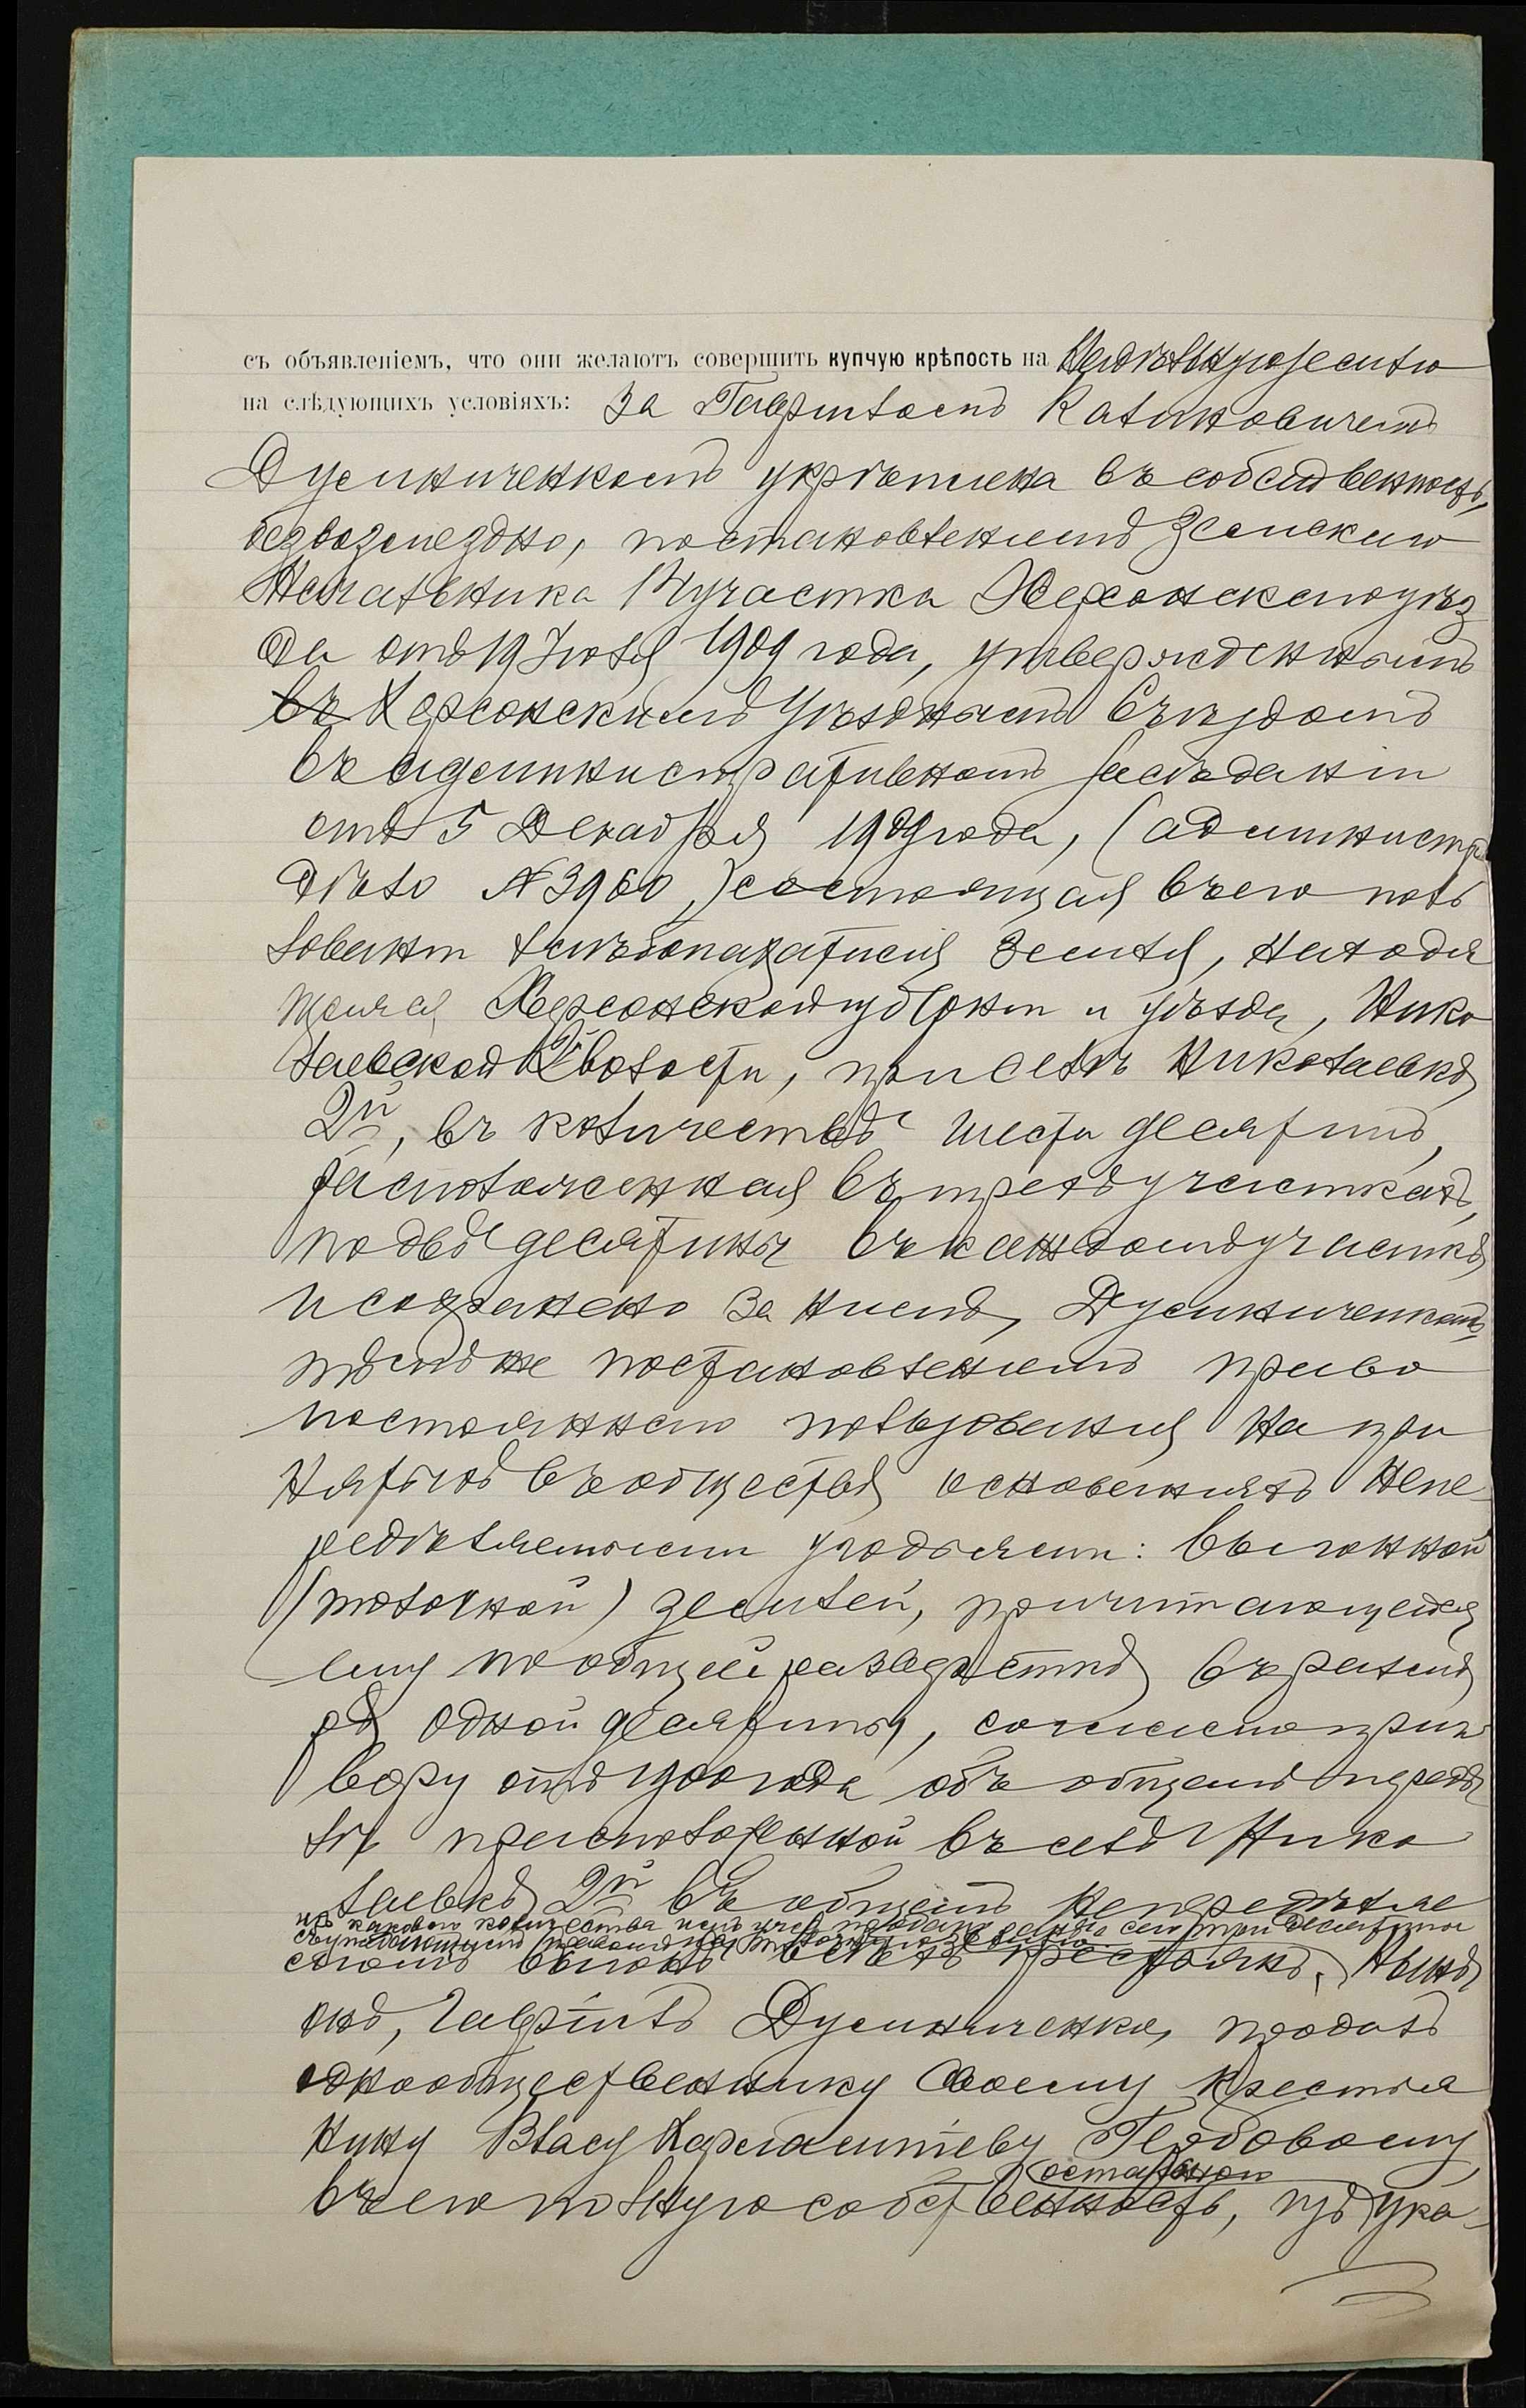 съ объявленіемъ, что они желаютъ совершить купчую крѣпость на надѣльную землю
на слѣдующихъ условіяхъ: За Гавріиломъ Калиновичемъ
Думниченкомъ укрѣплена въ собственность,
безвозмездно, постановленіемъ Земскаго
Начальника участка Херсонскаго уѣз
да отъ 19 Іюля 1909 года, утвержденнымъ
въ Херсонскимъ Уѣзднымъ Съѣздомъ
въ административномъ засѣданіи
отъ 5 Декабря 1909 года, (администр
дѣло № 3960,) состоящая въ его поль
зованіи земля, находя
щаяся Херсонской губерніи и уѣзда, Нико
лаевской 2й волости, при селѣ Николаевкѣ
2й, въ количествѣ шести десятинъ,
расположенная въ трехъ участкахъ,
по двѣ десятины въ каждомъ участкѣ,
и сохранено за нимъ, Думниченкомъ,
тѣмъ же постановленіемъ право
постояннаго пользованія на при
нятыхъ въ обществѣ основаніяхъ непе-
редѣляемыми угодьями: выгонной
(толочной) землей, причитающейся
ему по общей разверсткѣ въ размѣ
рѣ одной десятины, согласно приго
вору отъ 1900 года объ общемъ передѣ
лѣ расположенной въ селѣ Нико
лаевкѣ 2й въ общемъ непредѣляе
изъ каковаго количества имъ уже продано ранѣе сего три десятины
съ правомъ на толочную землю
момъ выгонѣ всѣхъ крестьянъ. Нынѣ
онъ, Гавріилъ Думниченко, продалъ
однообщественнику своему крестья
нину Власу Харлампіеву Глобовому
остальною
въ его полную собственность, изъ ука-